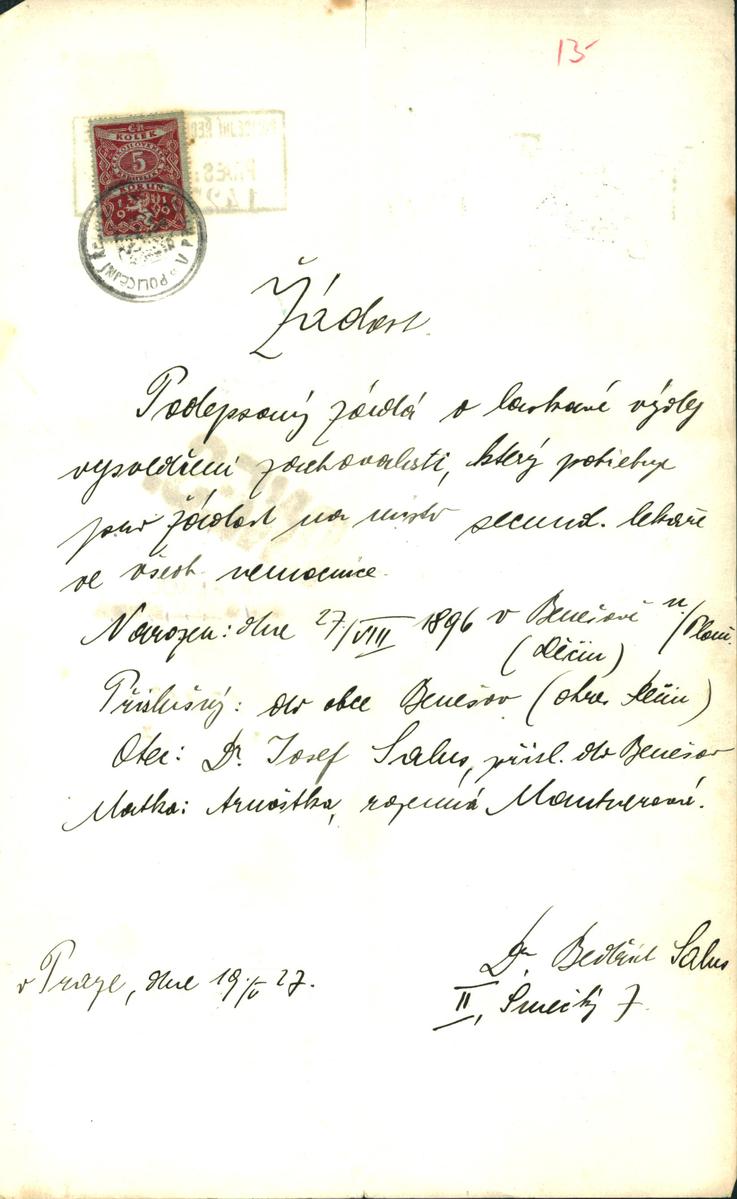 15
KOLEK
5
KORUN
POLICEJNÍ
Žádost.
Podepsaný žádá o laskavé výdej
vysvědčení zachovalosti, který potřebuje
pro žádost na místo secund. lékaře
ve všeob. nemocnice.
Narozen: dne 27/VIII 1896 v Benešově n/Plouč.
(Děčín)
Příslušný: do obce Benešov (okres Děčín)
Otec: Dr. Josef Salus, přísl. do Benešov
Matka: Arnoštka, rozenná Mautnerová.
v Praze, dne 19/V 27.
Dr. Bedřich Salus
II, Smečky 7.